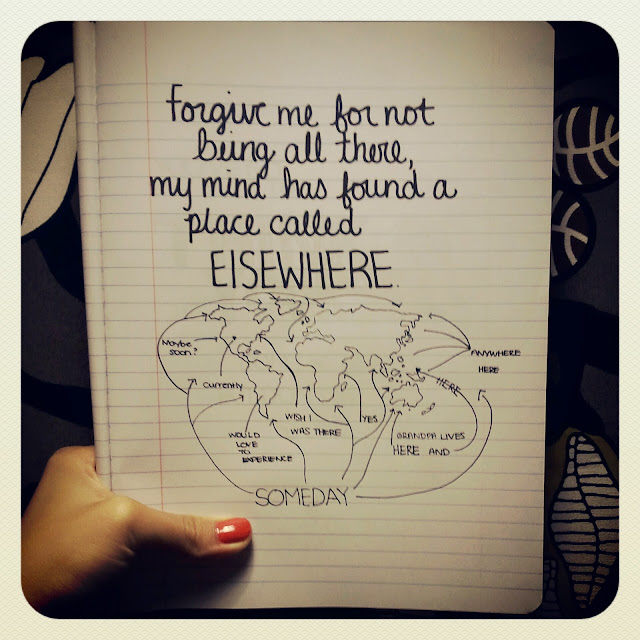 forgive me for not
being all there,
my mind has found a
place called
ElSEWHERE.
Maybe
soon?
Currently
WOULD
LOVE
TO
EXPERIENCE
WISH I
WAS THERE
YES
ANYWHERE
HERE
HERE
GRANDPA LIVES
HERE AND
SOMEDAY